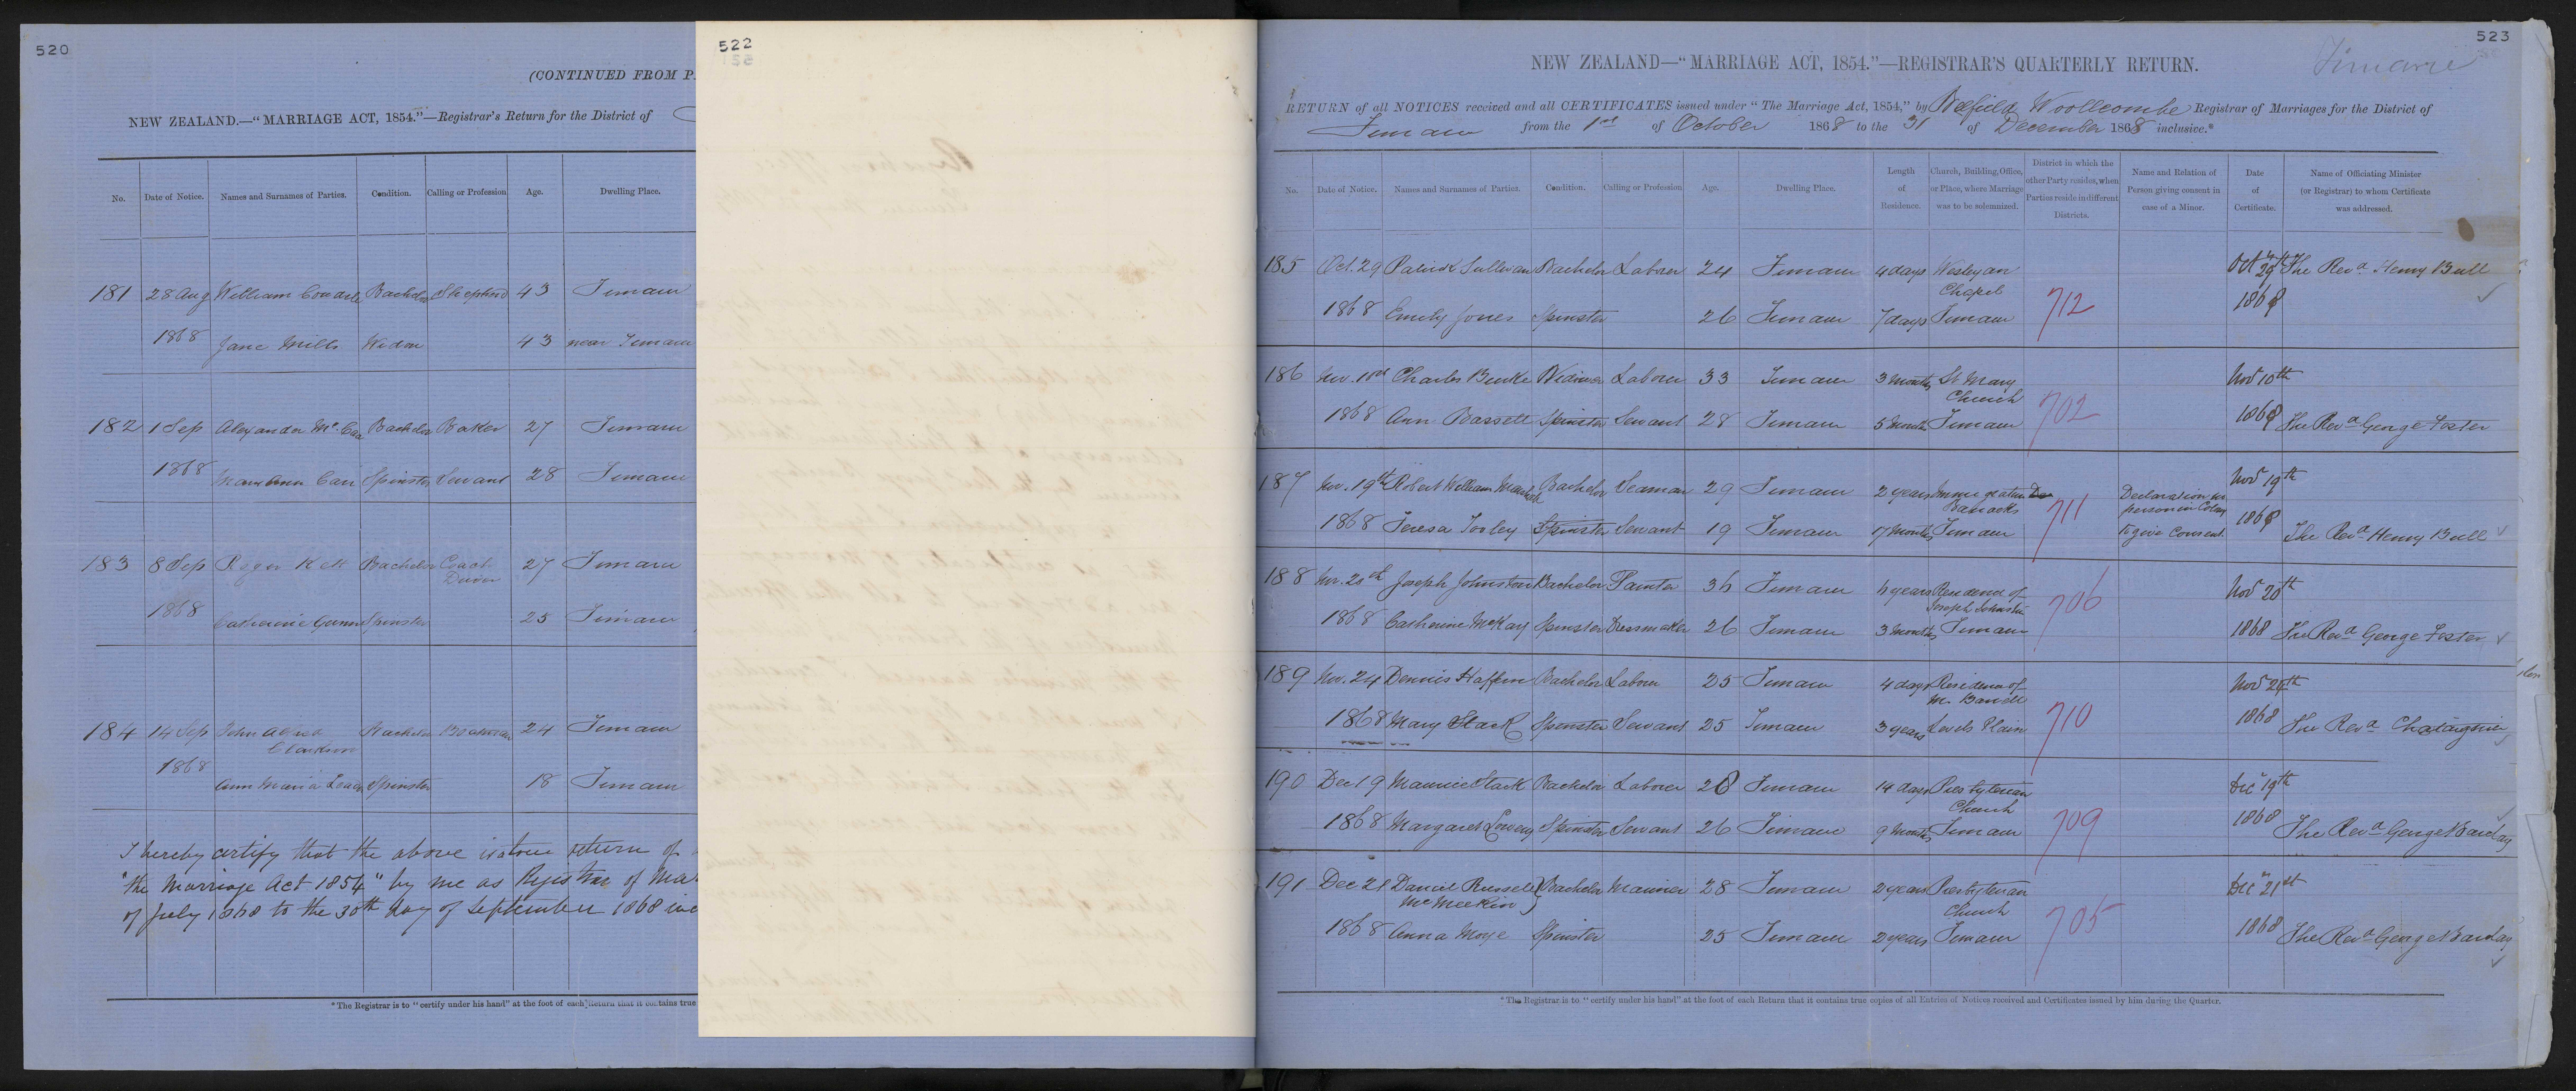 520
(CONTINUED FROM P
NEW ZEALAND.—"MARRIAGE ACT, 1854."—Registrar's Return for the District of
No. Date of Notice. Names and Surnames of Parties. Condition. Calling or Profession Age. Dwelling Place.
181 28 Aug William Bachelor Shepherd 43 Timaru
1868 Jane Mills Widow 43 near Timaru
182 1 Sep Alexander Bachelor Baker 27 Timaru
1868 Mary Ann Carr Spinster Servant 28 Timaru
183 8 Sep Roger Kett Bachelor Coach Driver 27 Timaru
1868 Catherine Gunn Spinster 25 Timaru
184 14 Sep John Alfred Clarkson Bachelor Boatman 24 Timaru
1868 Ann Maria Leach Spinster 18 Timaru
I hereby certify that the above is a true return of
"the Marriage Act 1854" by me as Registrar of Mar
of July 1868 to the 30th day of September 1868 inc
*The Registrar is to "certify under his hand" at the foot of each Return that it contains true
522
523
Timaru
NEW ZEALAND—"MARRIAGE ACT, 1854."—REGISTRAR'S QUARTERLY RETURN.
RETURN of all NOTICES received and all CERTIFICATES issued under "The Marriage Act, 1854," by Belfield Woollcombe Registrar of Marriages for the District of
Timaru from the 1st of October 1868 to the 31 of December 1868 inclusive.*
No. Date of Notice. Names and Surnames of Parties. Condition. Calling or Profession Age. Dwelling Place. Length of Residence. Church, Building, Office, or Place, where Marriage was to be solemnized. District in which the other Party resides, when Parties reside in different Districts. Name and Relation of Person giving consent in case of a Minor. Date of Certificate. Name of Officiating Minister (or Registrar) to whom Certificate was addressed.
185 Oct. 29 Patrick Sullivan Bachelor Laborer 24 Timaru 4 days Wesleyan Chapel 712 Oct 29th The Revd Henry Bull
1868 Emily Jones Spinster 26 Timaru 7 days Timaru 1868
186 Nov. 10th Charles Burke Widower Laborer 33 Timaru 3 months St Mary Church 702 Nov 10th
1868 Ann Bassett Spinster Servant 28 Timaru 5 months Timaru 1868 The Revd George Foster
187 Nov. 19th Robert William Bachelor Seaman 29 Timaru 2 years Immigration Barracks 711 Declaration no person in Colony Nov 19th
1868 Teresa Tooley Spinster Servant 19 Timaru 17 months Timaru to give Consent. 1868 The Revd Henry Bull
188 Nov. 20th Joseph Johnston Bachelor Painter 36 Timaru 4 years Residence of Joseph Johnston 706 Nov 20th
1868 Catherine McKay Spinster Dressmaker 26 Timaru 3 months Timaru 1868 The Revd George Foster
189 Nov. 24 Dennis Haffen Bachelor Laborer 25 Timaru 4 days Residence of Mr. 710 Nov 24th
1868 Mary Stack Spinster Servant 25 Timaru 3 years Levels Plain 1868 The Revd Chataignier
190 Dec 19 Maurice Stack Bachelor Laborer 28 Timaru 14 days Presbyterian Church 709 Dec 19th
1868 Margaret Spinster Servant 26 Timaru 9 months Timaru 1868 The Revd George Barclay
191 Dec 21 Daniel Russell McMeekin Bachelor Mariner 28 Timaru 2 years Presbyterian Church 705 Dec 21st
1868 Anna Moye Spinster 25 Timaru 2 years Timaru 1868 The Revd George Barclay
*The Registrar is to "certify under his hand" at the foot of each Return that it contains true copies of all Entries of Notices received and Certificates issued by him during the Quarter.